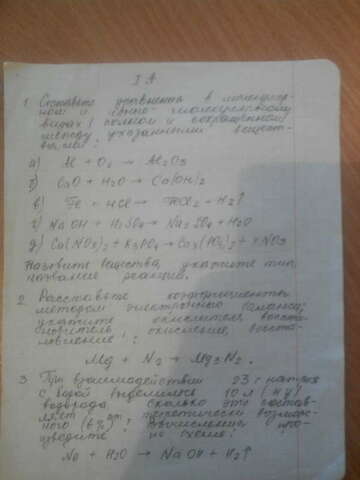 I А
1. Составьте уравнения в молекуляр-
ном и ионно-молекулярном
видах (полном и сокращённом)
между указанными вещест-
вами:
а) Al + O₂ → Al₂O₃
б) CaO + H₂O → Ca(OH)₂
в) Fe + HCl → FeCl₂ + H₂↑
г) NaOH + H₂SO₄ → Na₂SO₄ + H₂O
д) Ca(NO₃)₂ + K₃PO₄ → Ca₃(PO₄)₂ + KNO₃
Назовите вещества, укажите тип,
название реакции.
2. Расставьте коэффициенты
методом электронного баланса,
укажите окислитель, восста-
новитель, окисление, восста-
новление:
Mg + N₂ → Mg₃N₂.
3. При взаимодействии 23 г натрия
с водой выделилось 10 л (н.у.)
водорода. Сколько это состав-
ляет от теоретически возмож-
ного (в %)? Вычисления про-
изводите по схеме:
Na + H₂O → NaOH + H₂↑